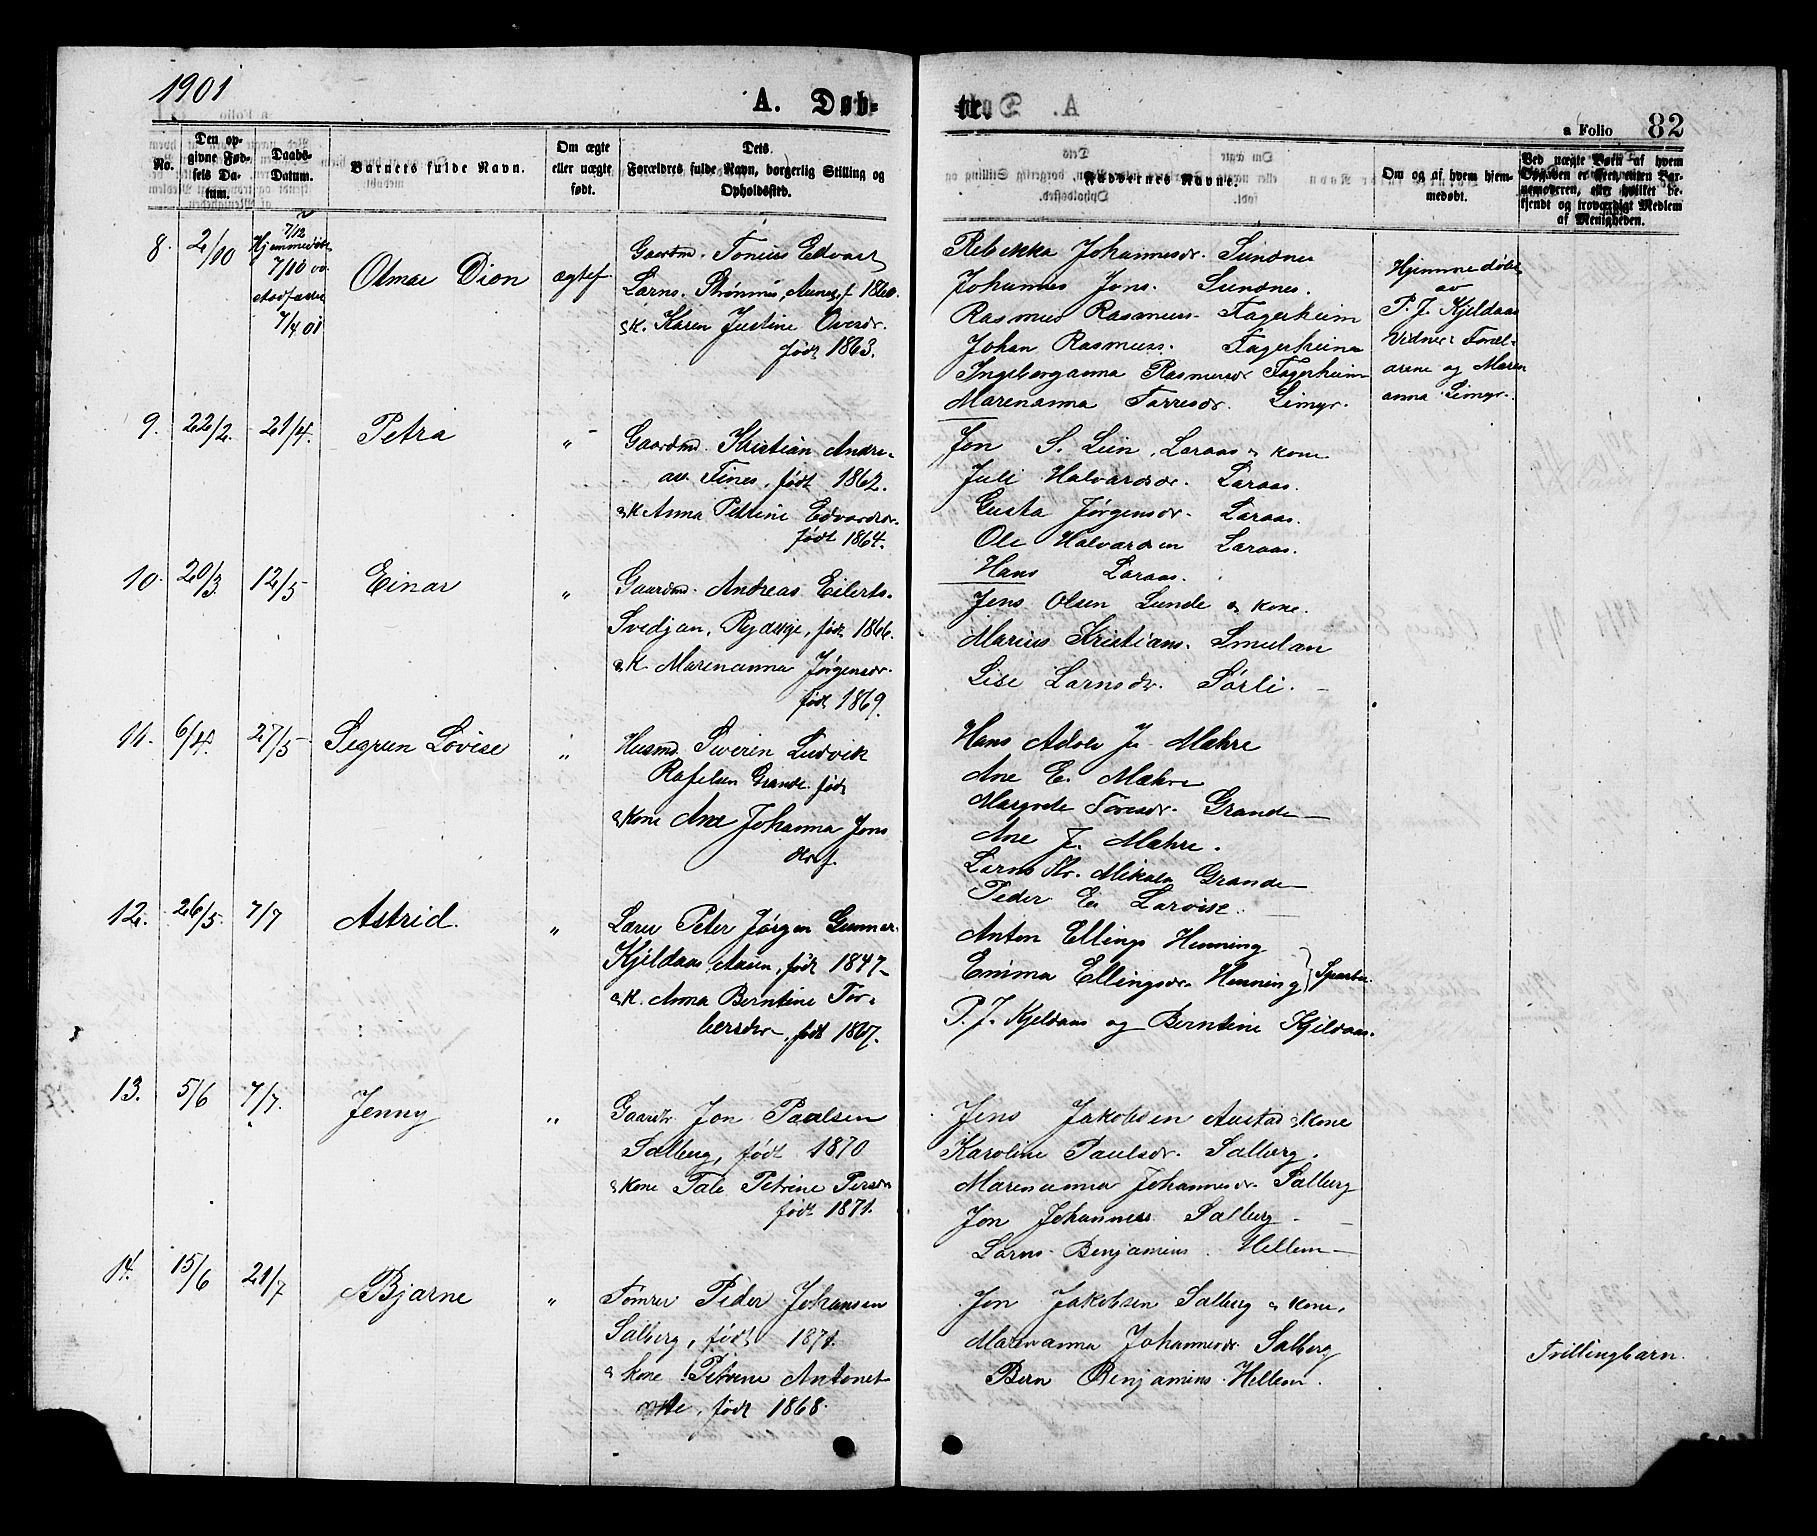 1901
A. Døb-
te.
a Folio 82
No.
Den op-
givne Fød-
sels Da-
tum.
Daabs-
Datum.
Barnets fulde Navn.
Om ægte
eller uægte
født.
Dets
Forældres fulde Navn, borgerlig Stilling og
Opholdssted.
Faddernes Navne.
Om og af hvem hjem-
medøbt.
Ved uægte Børn af hvem
Opgaven er skeet, enten Bar-
nemoderen, eller hvilket be-
kjendt og troværdigt Medlem
af Menigheden.
8. 2/10
7/12
Hjemmedøbt
7/10 00
Stadfæstet
7/4 01
Otmar Dion
ægtef
Gaardmd. Tonius Edvart
Larns. Strømnes, Aunes, f 1860.
& K. Karen Justine Oversdr.
født 1863.
Rebekka Johannesdr. Sundnes
Johannes Jons. Sundnes.
Rasmus Rasmuss. Fagerheim
Johan Rasmuss. Fagerheim
Ingeborganna Rasmusdr Fagerheim
Marenanna Torresdr. Limyr.
Hjemmedøbt
av
P. J. Kjeldaas
Vidner: Foræl-
drene og Maren
anna Limyr.
9. 22/2. 21/4. Petra "
Gaardmd. Kristian Andre-
as. Fines, født 1862.
& K Anna Petrine Edvardsdr.
født 1864.
Jon S. Lein, Laraas & kone
Juli Halvarsdr. Laraas.
Gusta Jørgensdr. Laraas.
Ole Halvarsen Laraas.
Hans Laraas.
10. 20/3 12/5 Einar "
Gaardmd. Andreas Eilerts.
Svedjan, Rydsvge, født 1866.
& K. Marenanna Jørgensdr.
født 1869.
Jens Olsen Lunde & kone.
Marius Kristians. Smulan
Lise Larnsdr. Sørli.
11. 6/4. 27/5 Segrun Lovise "
Husmd. Severin Ludvik
Rafelsen Grande. født
& kone Ane Johanna Jons
datf.
Hans Adolv J. Mæhre
Ane E. Mæhre
Margrete Toresdr. Grande
Ane J. Mæhre.
Larns Kr. Mikals Grande
Peder E. Larvise.
12. 26/5. 7/7 Astrid. "
Lærer Peter Jørgen Gunner.
Kjeldaas, Aasen, født 1847
& K. Anna Berntine Tor-
bersdr., født 1867.
Anton Ellings Henning
Emma Ellingsdr. Henning } Sparbu
P. J. Kjeldaas og Berntine Kjeldaas.
13. 5/6 7/7. Jenny "
Gaardbr Jon Paulsen
Salberg, født 1870
& kone Tale Petrine Persdr
født 1871.
Jens Jakobsen Austad & kone
Karoline Paulsdr. Salberg.
Marenanna Johannesdr. Salberg
Jon Johanness Salberg.
Larns Benjamins. Hellem
14. 15/6 21/7 Bjarne "
Tømrer Peder Johansen
Salberg, født 1871.
& kone Petrine Antonet-
te, født 1868.
Jon Jakobsen Salberg & kone,
Marenanna Johannesdr Salberg
Bern Benjamins. Hellem.
Tvillingbarn.